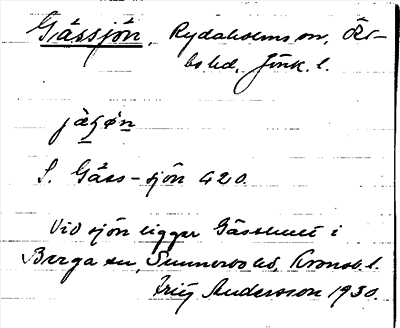 Gässjön, Rydaholms sn, Öst-
bo hd, Jönk. l.
jä̀sø̀n
S. Gäss-sjön G20.
Vid sjön ligger Gässhult i
Berga sn, Sunnerbo hd, Kronob. l.
Andersson 1930.